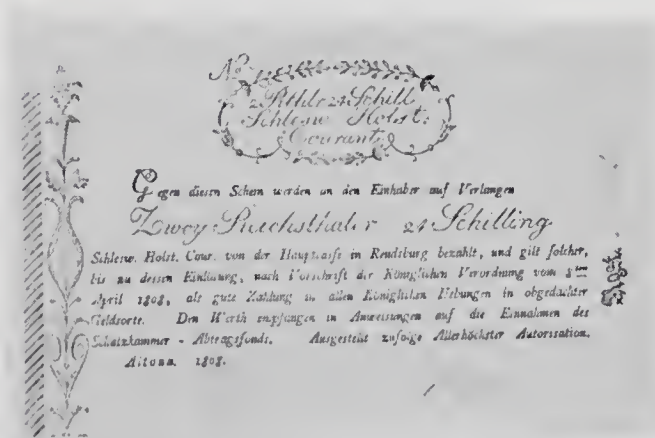 No
2 Rthlr 24 Schill
Schlesw. Holst.
Courant.
Gegen diesen Schein werden an den Einhaber auf Verlangen
Zwey Reichsthaler 24 Schilling
Schlesw. Holst. Cour. von der Hauptcasse in Rendsburg bezahlt, und gilt solcher,
bis zu dessen Einlösung, nach Vorschrift der Königlichen Verordnung vom 8ten
April 1808, als gute Zahlung in allen Königlichen Hebungen in obgedachter
Geldsorte. Den Werth empfangen in Anweisungen auf die Einnahmen des
Schatzkammer - Abtragsfonds. Ausgestellt zufolge Allerhöchster Autorisation.
Altona. 1808.